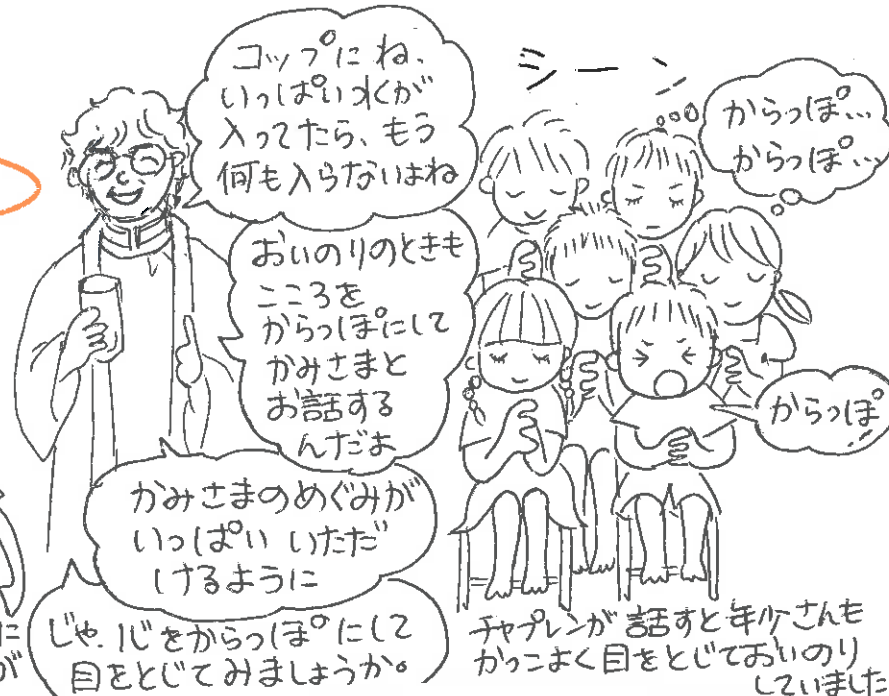 コップにね、
いっぱい水が
入ってたら、もう
何も入らないよね
おいのりのときも
こころを
からっぽにして
かみさまと
お話する
んだよ
かみさまのめぐみが
いっぱい いただ
けるように
じゃ、心をからっぽにして
目をとじてみましょうか。
シーン
からっぽ…
からっぽ…
からっぽ
チャプレンが話すと年少さんも
かっこよく目をとじておいのり
していました
に
が